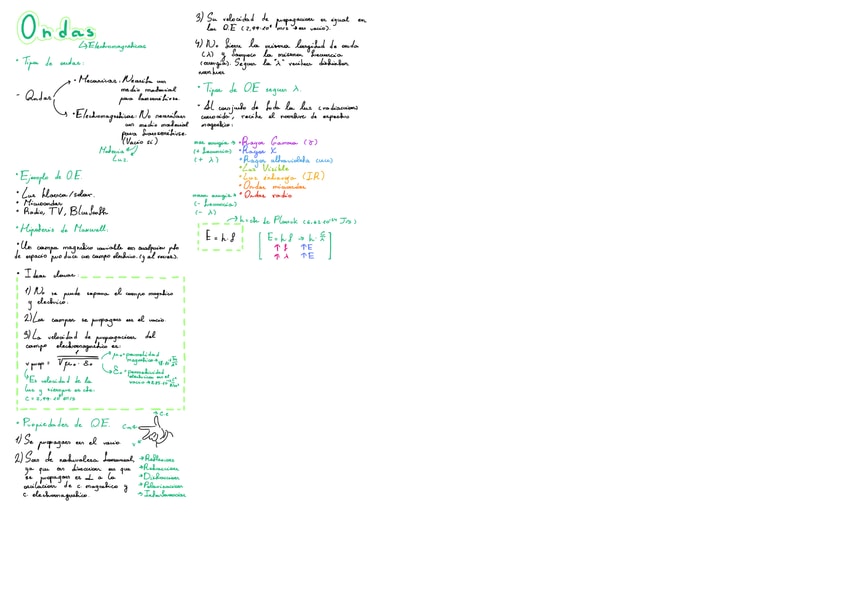 Ondas
↳Electromagnéticas
• Tipos de ondas:
- Ondas
• Mecánicas: Necesita un
medio material
para transmitirse.
• Electromagnéticas: No necesitan
un medio material
para transmitirse.
(Vacío sí)
Materia
Luz.
• Ejemplo de OE
• Luz blanca/solar.
• Microondas
• Radio, TV, Bluetooth
• Hipótesis de Maxwell:
• Un campo magnético variable en cualquier pto
de espacio produce un campo eléctrico. (y al revés).
• Ideas claves:
1) No se puede separar el campo magnético
y eléctrico.
2) Los campos se propagan en el vacío.
3) La velocidad de propagación del
campo electromagnético es:
v prop = 1/√μ₀ · ε₀
→ μ₀ = permeabilidad
magnética
→ ε₀ = permitividad
eléctrica en el
vacío
Es velocidad de la
luz y siempre es cte.
c = 2,99·10⁸ m/s
• Propiedades de OE.
1) Se propagan en el vacío.
2) Son de naturaleza transversal,
ya que su dirección en que
se propagan es ⊥ a la
oscilación de c. magnético y
c. electromagnético.
→ Reflexión
→ Refracción
→ Difracción
→ Polarización
→ Interferencia
3) Su velocidad de propagación es igual en
las OE (2,99·10⁸ m/s → en vacío).
4) No tiene la misma longitud de onda
(λ) y tampoco la misma frecuencia
(energía). Según la "λ" reciben distintos
nombres
• Tipos de OE según λ.
• Al conjunto de toda la luz (radiaciones)
conocida, recibe el nombre de espectro
magnético:
mas energía → • Rayos Gamma (γ)
(+ frecuencia) • Rayos X
(+ λ) • Rayos ultravioleta (uv)
• Luz Visible
• Luz infraroja (IR)
• Ondas microondas
menos energía → • Ondas radio
(- frecuencia)
(- λ)
→ h = cte de Planck (6,62·10⁻³⁴ J·s)
E = h · f
[ E = h · f → h · c/λ ]
↑ f ↑ E
↑ λ ↑ E